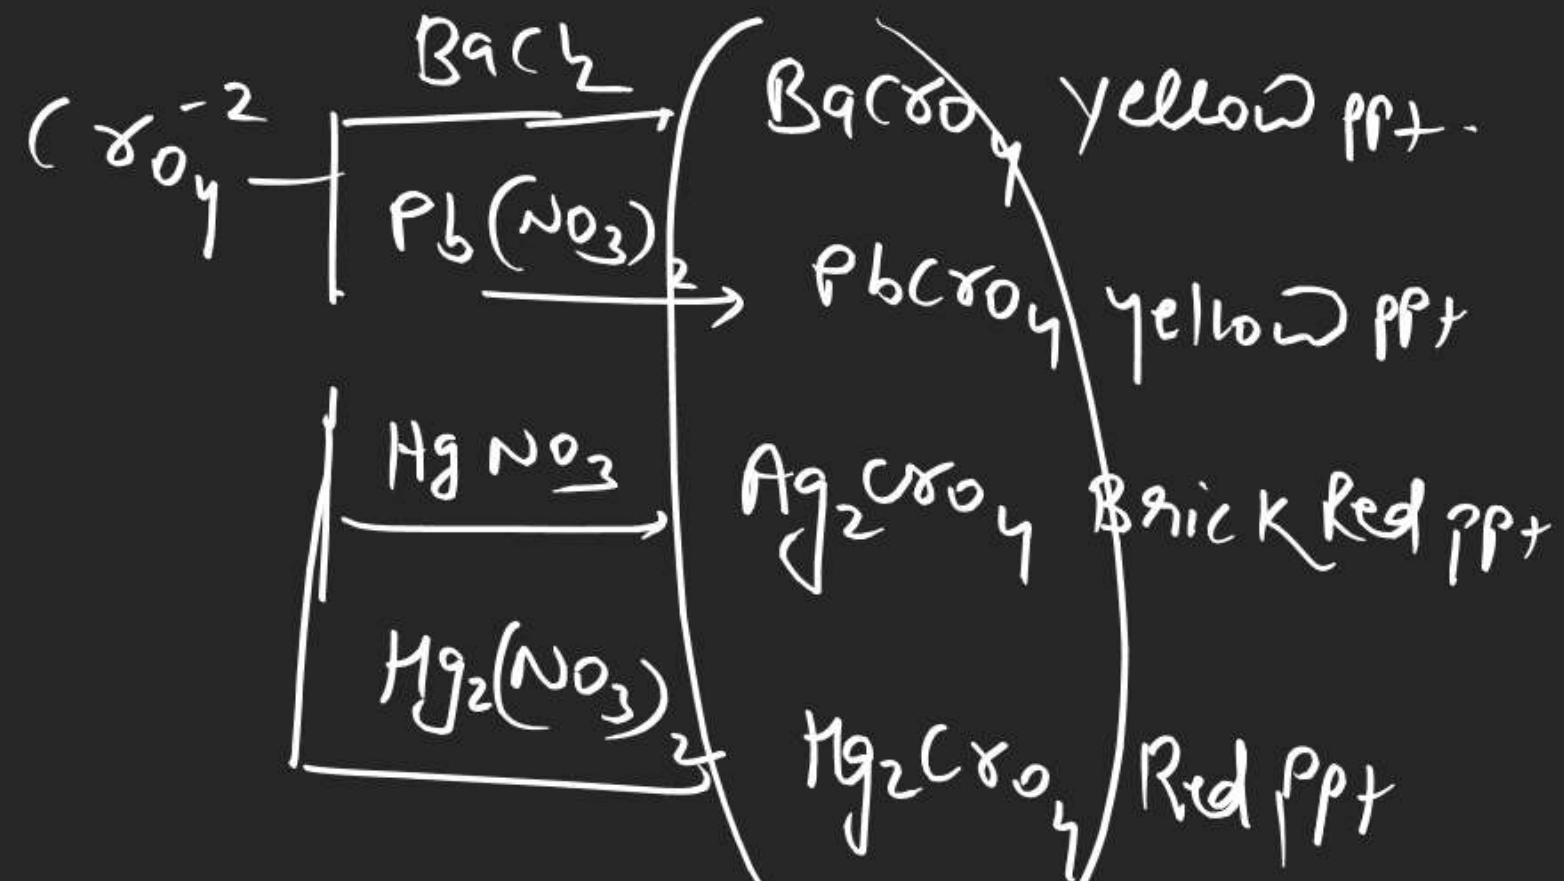 BaCl2
CrO4^-2 BaCrO4 yellow ppt.
Pb(NO3)2 PbCrO4 yellow ppt
HgNO3 Ag2CrO4 Brick Red ppt
Hg2(NO3)2 Hg2CrO4 Red ppt